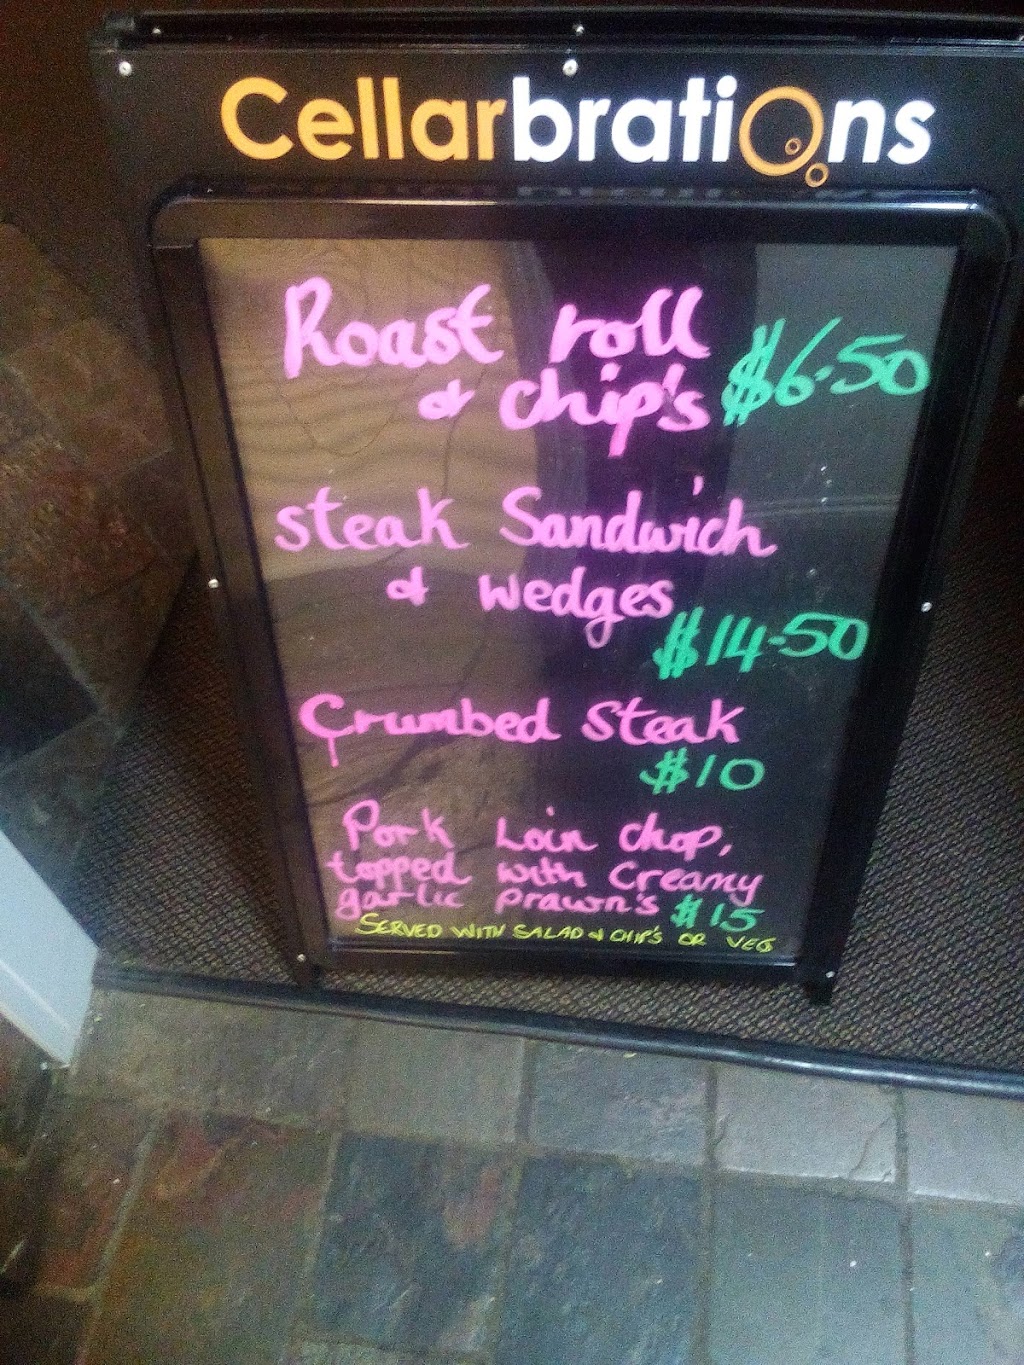 Cellarbrations
Roast roll
& chip's $6.50
steak Sandwich
& wedges
$14-50
Crumbed Steak
$10
Pork Loin chop,
topped with Creamy
garlic prawn's $15
SERVED WITH SALAD & CHIP'S OR VEG